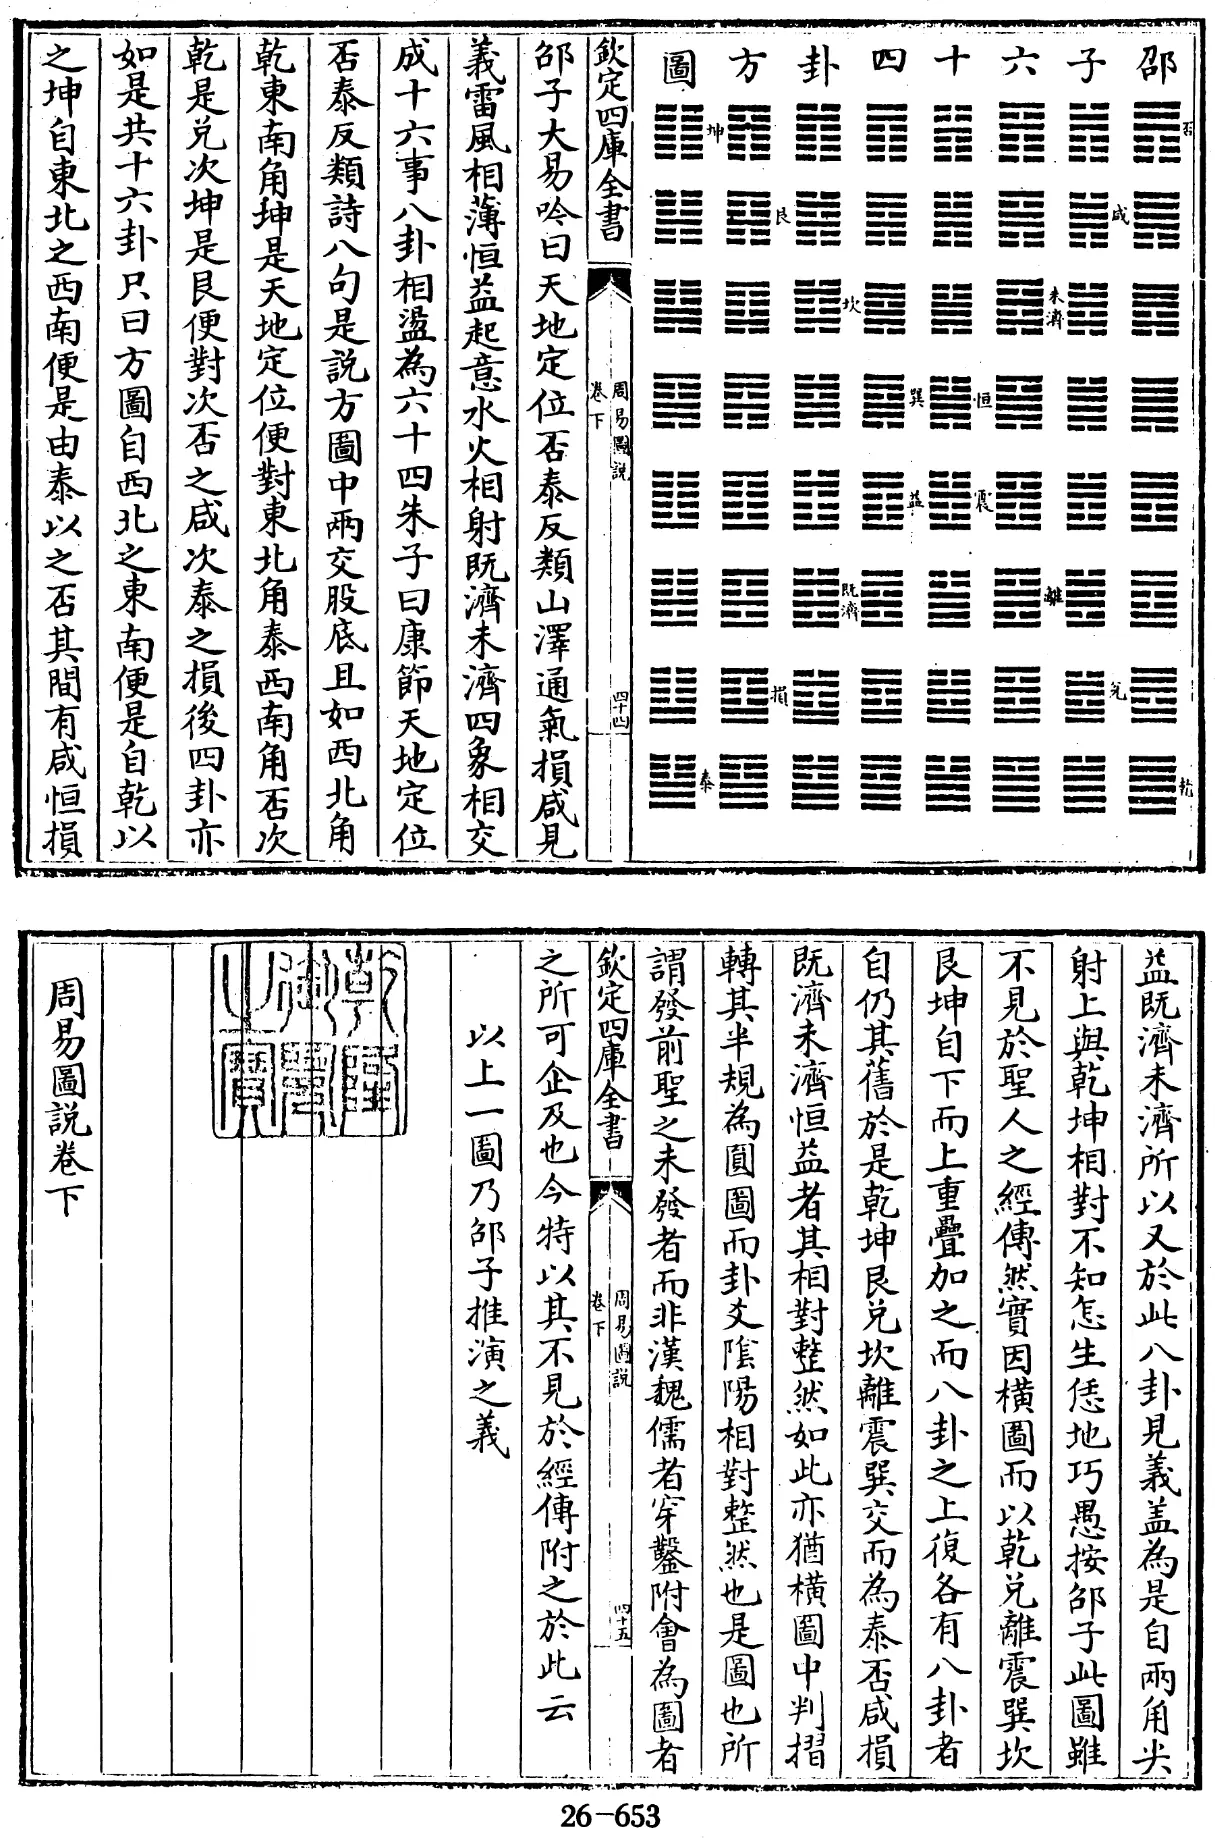 邵子六十四卦方圖
否
咸
未濟
恒
震
離
兌
乾
坤
艮
坎
巽
益
既濟
損
泰
欽定四庫全書
周易圖說
卷下
四十四
邵子大易吟曰天地定位否泰反類山澤通氣損咸見
義雷風相薄恒益起意水火相射既濟未濟四象相交
成十六事八卦相盪為六十四朱子曰康節天地定位
否泰反類詩八句是說方圖中兩交股底且如西北角
乾東南角坤是天地定位便對東北角泰西南角否次
乾是兌次坤是艮便對次否之咸次泰之損後四卦亦
如是共十六卦只曰方圖自西北之東南便是自乾以
之坤自東北之西南便是由泰以之否其間有咸恒損
益既濟未濟所以又於此八卦見義盖為是自兩角尖
射上與乾坤相對不知怎生恁地巧愚按邵子此圖雖
不見於聖人之經傳然實因橫圖而以乾兌離震巽坎
艮坤自下而上重疊加之而八卦之上復各有八卦者
自仍其舊於是乾坤艮兌坎離震巽交而為泰否咸損
既濟未濟恒益者其相對整然如此亦猶橫圖中判摺
轉其半規為圓圖而卦爻陰陽相對整然也是圖也所
謂發前聖之未發者而非漢魏儒者穿鑿附會為圖者
欽定四庫全書
周易圖說
卷下
四十五
之所可企及也今特以其不見於經傳附之於此云
以上一圖乃邵子推演之義
乾隆御覽之寶
周易圖說卷下
26-653